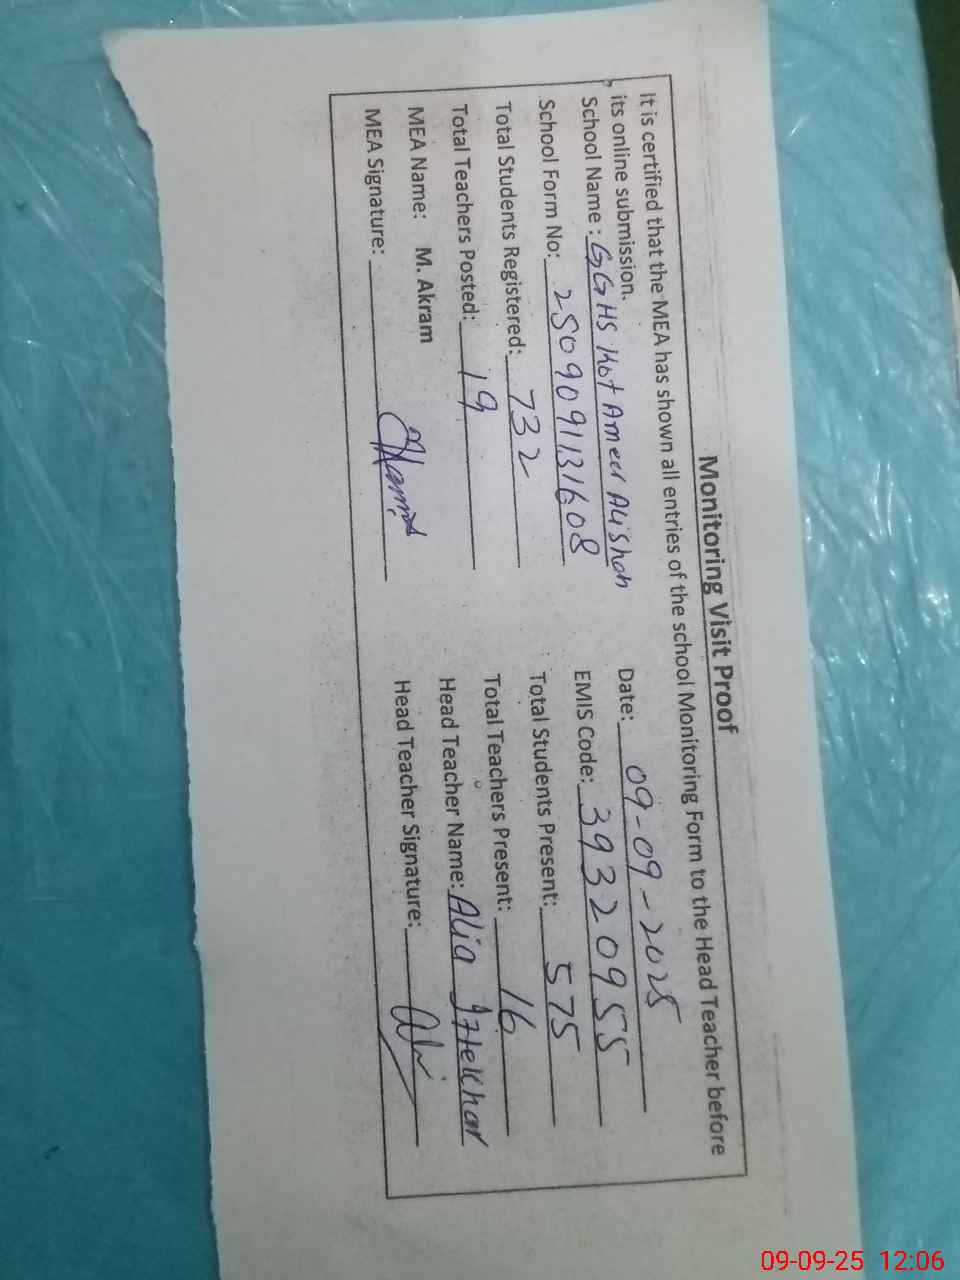 Monitoring Visit Proof
It is certified that the MEA has shown all entries of the school Monitoring Form to the Head Teacher before
its online submission.
School Name : GGHS Kot Ameer Ali Shah Date: 09-09-2025
School Form No: 250909131608 EMIS Code: 39320955
Total Students Registered: 732 Total Students Present: 575
Total Teachers Posted: 19 Total Teachers Present: 16
MEA Name: M. Akram Head Teacher Name: Alia Iftekhar
MEA Signature: Head Teacher Signature:
09-09-25 12:06